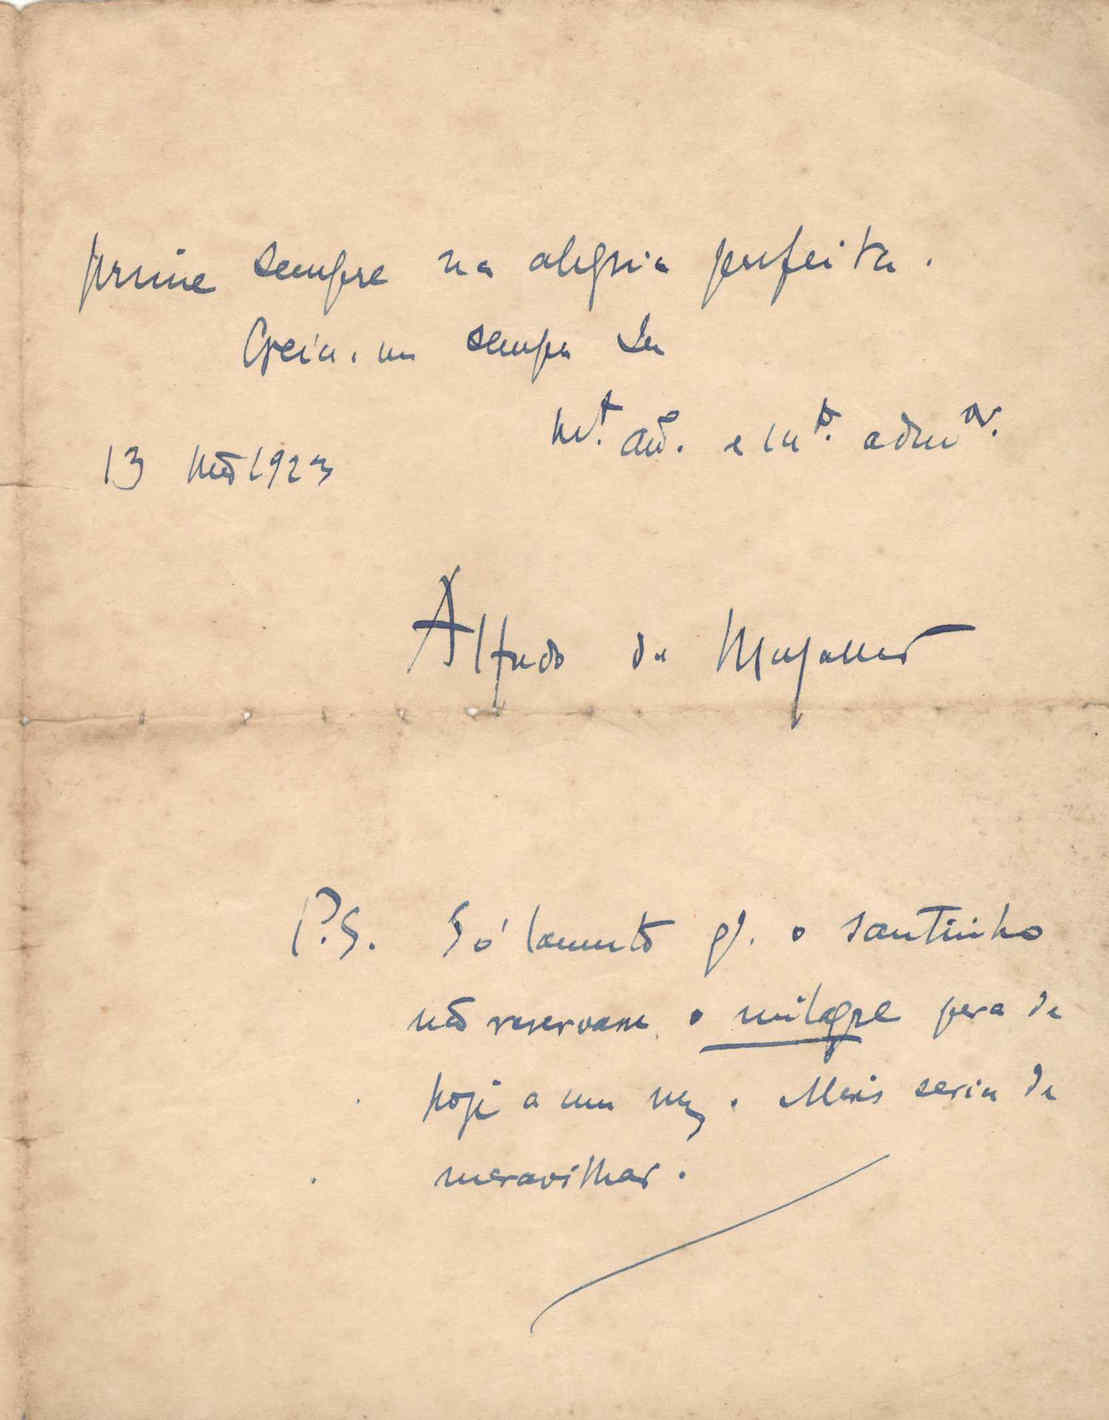 prime sempre na alegria perfeita.
Creia-me sempre De
Mt. am. e mt. admor.
13 Mço 1923
Alfredo de Magalhães
P.S. Só lamento q. o santinho
não reservasse o milagre para de
hoje a um mez. Mais seria de
maravilhar.